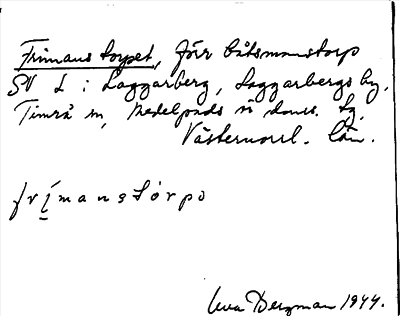 Frimanstorpet, förr båtsmanstorp
SV L i Laggarberg, Laggarbergs by,
Timrå sn, Medelpads v. doms. tg,
Västernorrl. län.
frimanstórpə
Uva Bergman 1944.